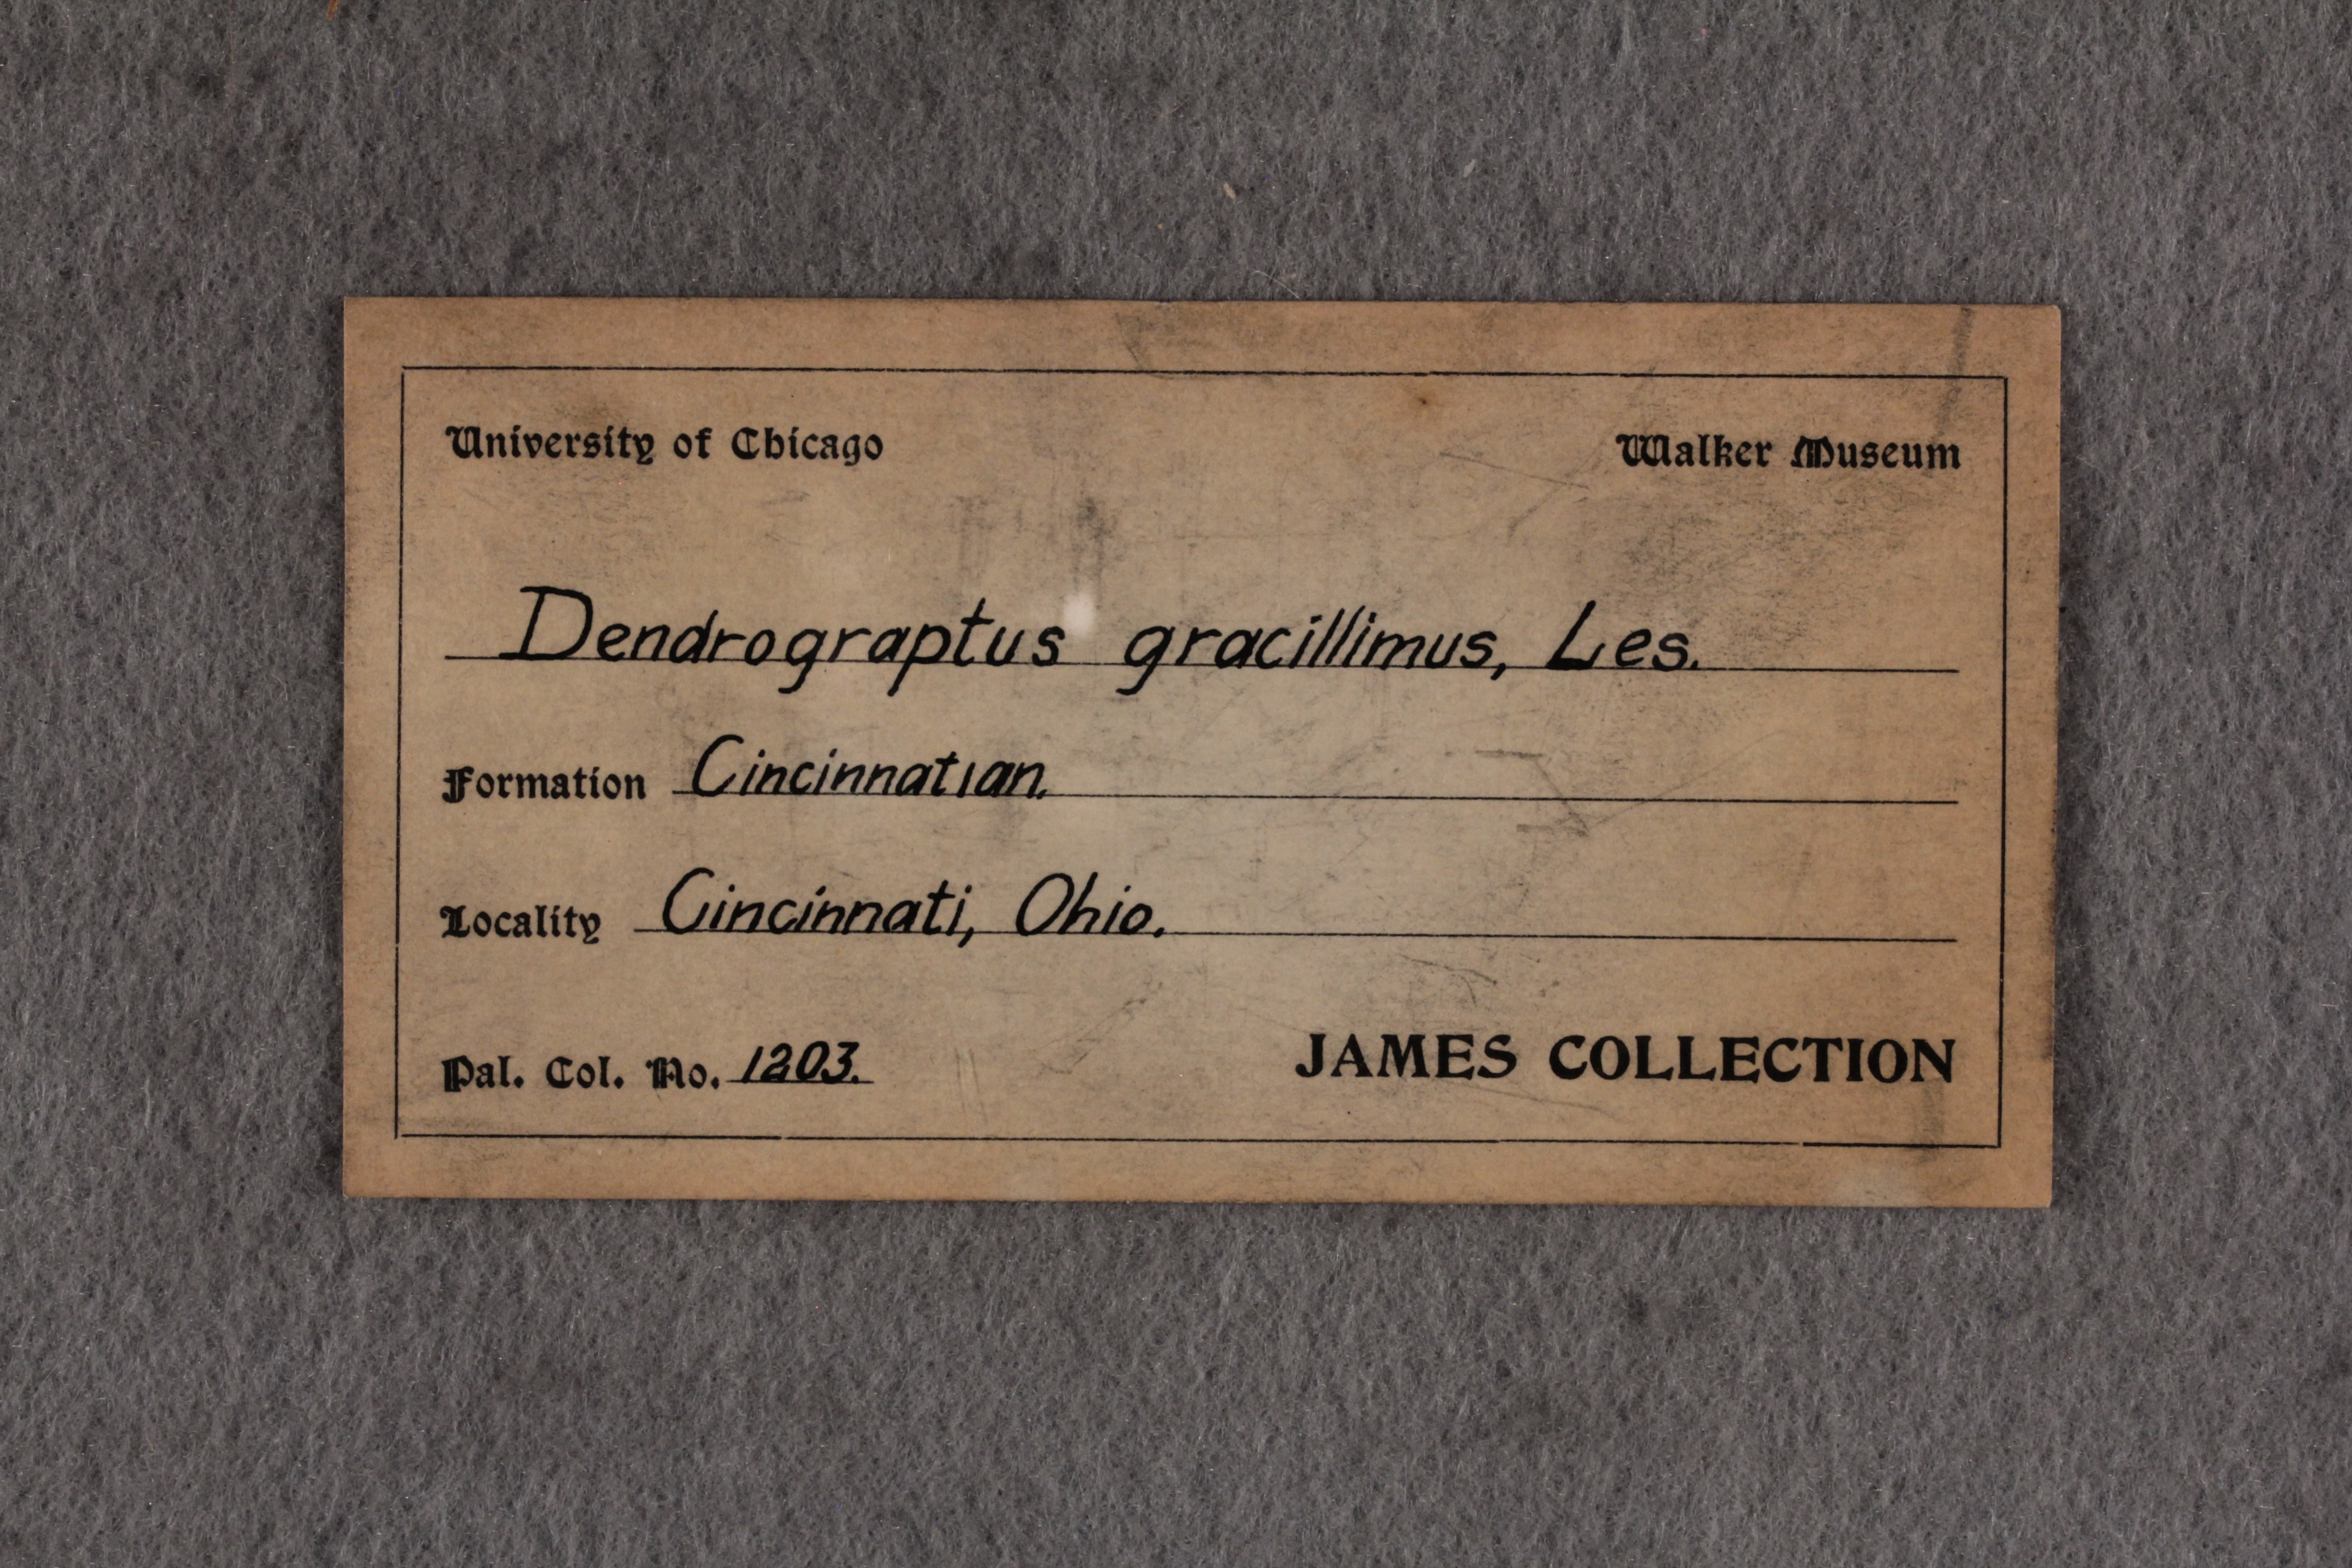 University of Chicago Walker Museum
Dendrograptus gracillimus, Les.
Formation Cincinnatian.
Locality Cincinnati, Ohio.
Pal. Col. No. 1203. JAMES COLLECTION